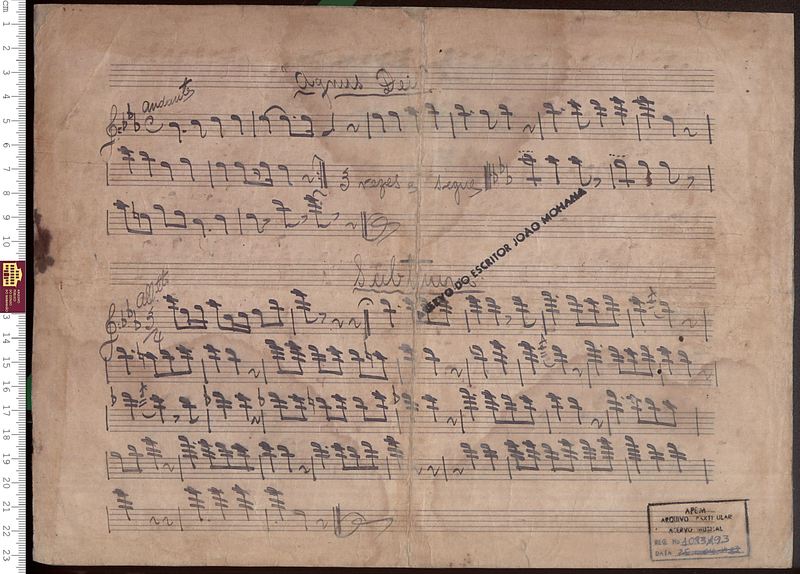 Agnus Dei
Andante
3 vezes e segue
ACERVO DO ESCRITOR JOÃO MOHANA
Sub Tuum
All.tto
3
4
APEM
ARQUIVO PARTICULAR
ACERVO MUSICAL
REG. Nº 1083/93
DATA
cm 1 2 3 4 5 6 7 8 9 10 13 14 15 16 17 18 19 20 21 22 23